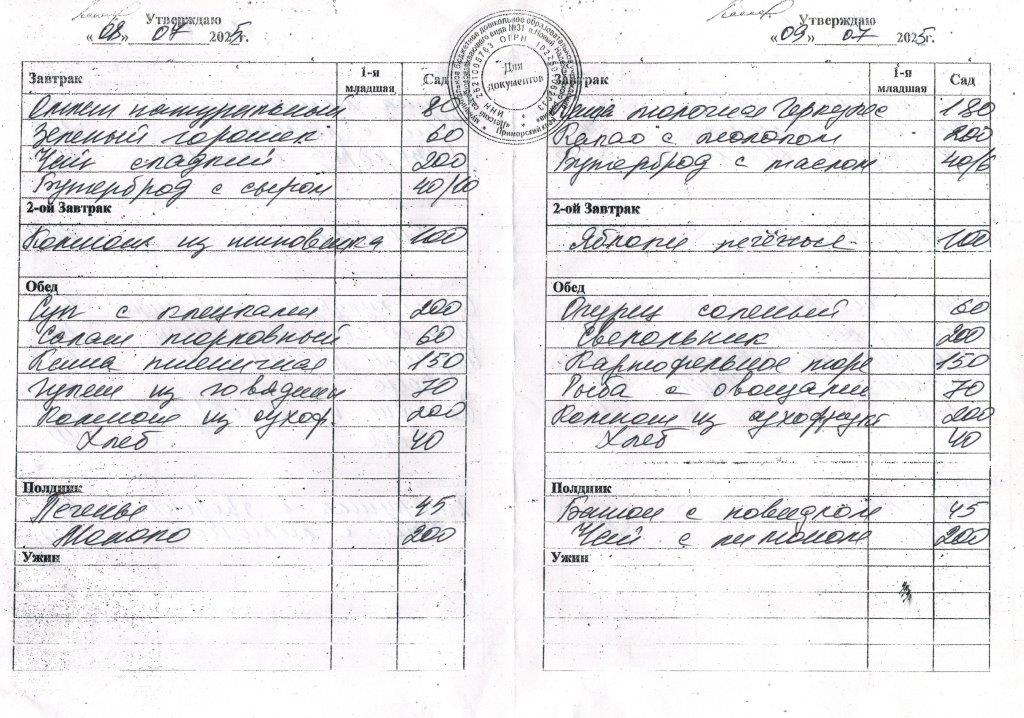 Утверждаю
«08» 07 2025г.
Завтрак 1-я младшая Сад
Омлет натуральный 80
Зеленый горошек 60
Чай сладкий 200
Бутерброд с сыром 40/10
2-ой Завтрак
Компот из шиповника 100
Обед
Суп с клецками 200
Салат морковный 60
Каша пшеничная 150
Гуляш из говядины 70
Компот из сухоф. 200
Хлеб 40
Полдник
Печенье 45
Молоко 200
Ужин
Для
документов
Утверждаю
«09» 07 2025г.
Завтрак 1-я младшая Сад
молочная Геркулес 180
Какао с молоком 200
Бутерброд с маслом 40/6
2-ой Завтрак
Яблоки печёные 100
Обед
Огурец соленый 60
Свекольник 200
Картофельное пюре 150
Рыба с овощами 70
Компот из сухофрукт 200
Хлеб 40
Полдник
Батон с повидлом 45
Чай с лимоном 200
Ужин